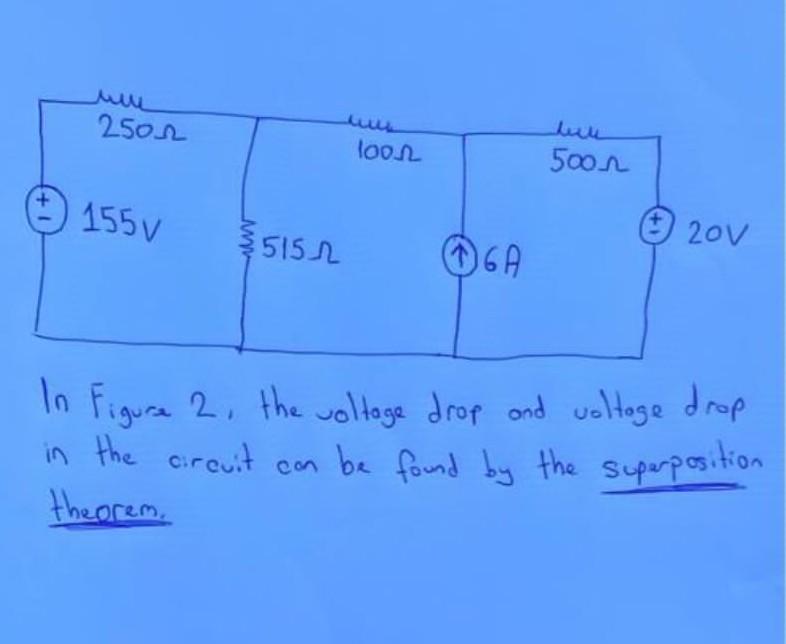 250Ω
100Ω
500Ω
+
-
155V
515Ω
6A
+
-
20V
In Figure 2, the voltage drop and voltage drop
in the circuit can be found by the superposition
theorem.